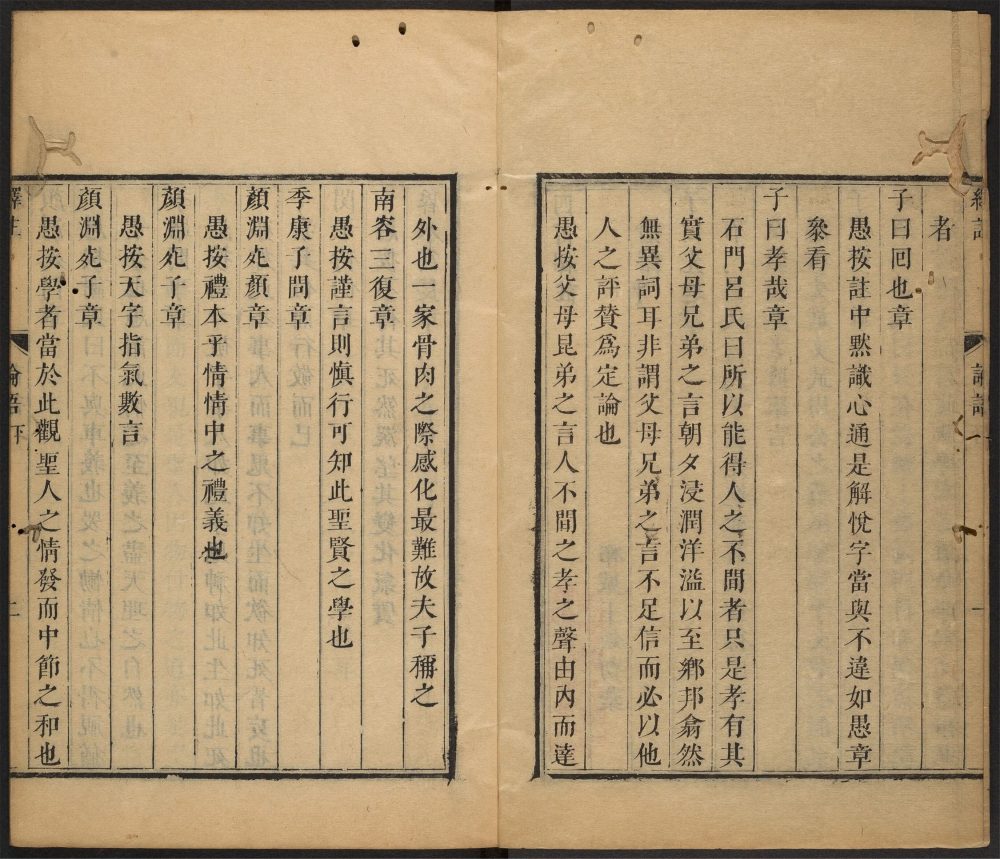 者
子曰回也章
愚按註中黙識心通是解悅字當與不違如愚章
叅看
子曰孝哉章
石門呂氏曰所以能得人之不間者只是孝有其
實父母兄弟之言朝夕浸潤洋溢以至鄕邦翕然
無異詞耳非謂父母兄弟之言不足信而必以他
人之評賛爲定論也
愚按父母昆弟之言人不間之孝之聲由內而達
外也一家骨肉之際感化最難故夫子稱之
南容三復章
愚按謹言則愼行可知此聖賢之學也
季康子問章
顏淵死顏章
愚按禮本乎情情中之禮義也
顏淵死子章
愚按天字指氣數言
顏淵死子章
愚按學者當於此觀聖人之情發而中節之和也
論語下
二